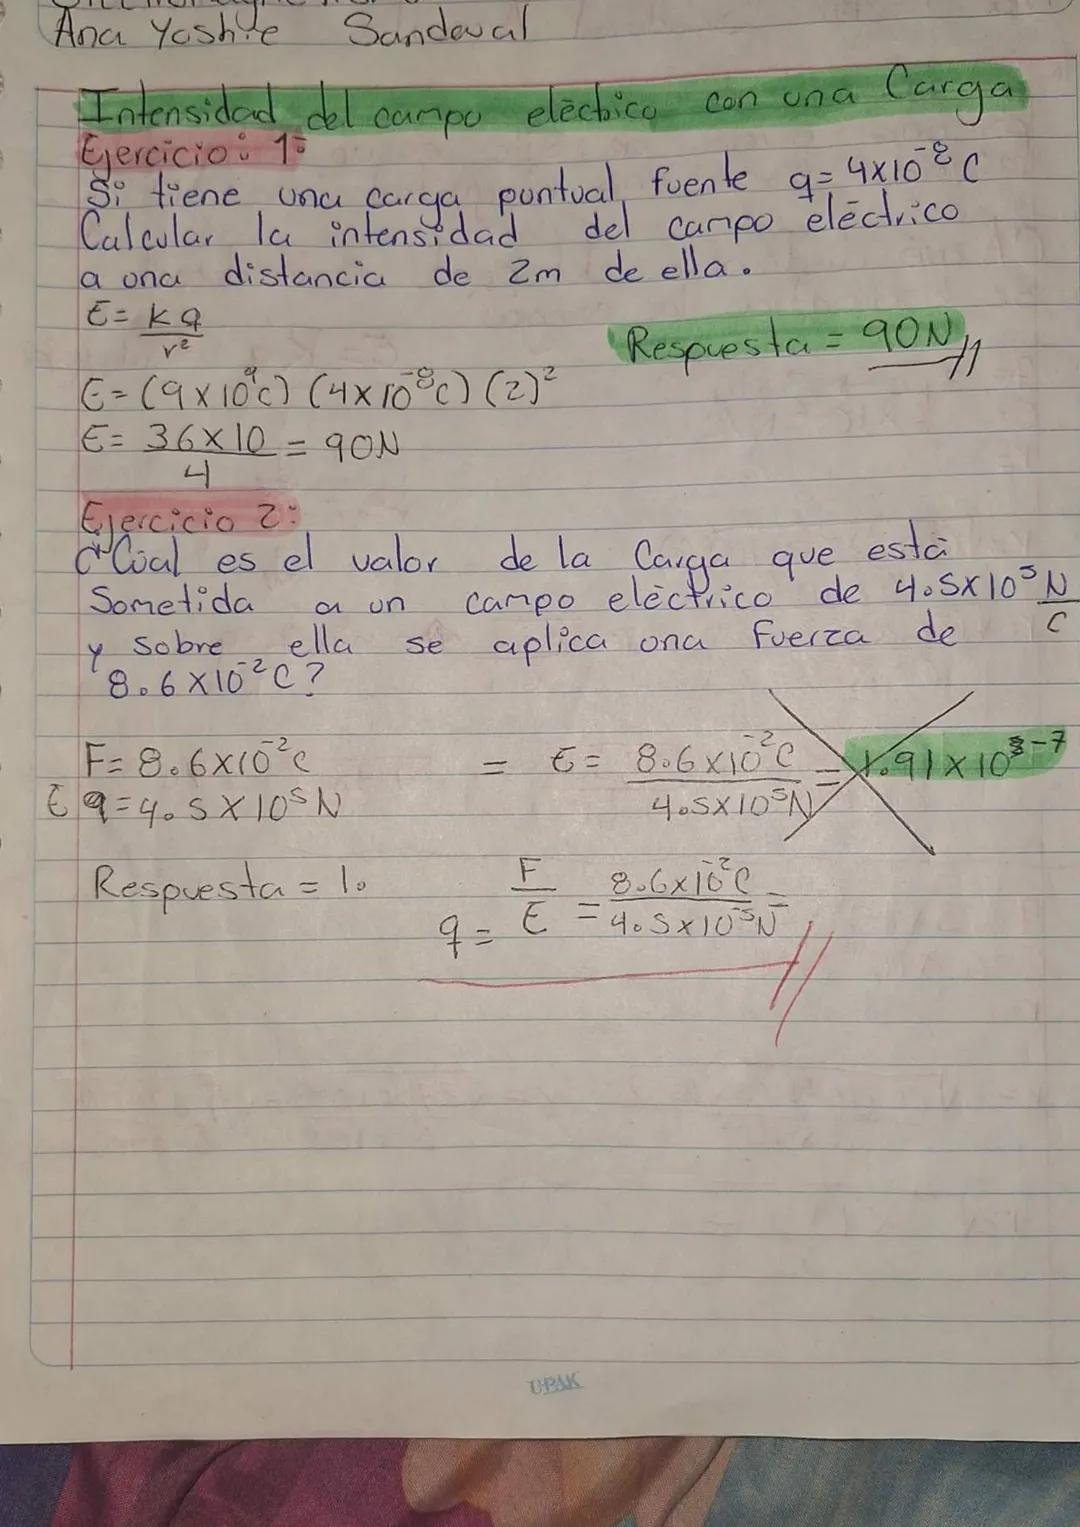 Ana Yoshie Sandoval
Intensidad del campo eléctrico con una Carga
Ejercicio: 1:
Si tiene una carga puntual fuente q= 4x10⁻⁸ C
Calcular la intensidad del campo eléctrico
a una distancia de 2m de ella.
E= kq
r²
Respuesta = 90N
E= (9x10⁹c) (4x10⁻⁸c) (2)²
E= 36x10 = 90N
4
Ejercicio 2:
Cúal es el valor de la Carga que está
Sometida a un campo eléctrico de 4.5x10⁵ N
C
y sobre ella se aplica una fuerza de
8.6x10⁻²C?
F= 8.6x10⁻²c = E= 8.6x10⁻²C = 1.91x10⁻⁷
E q=4.5x10⁵N 4.5x10⁵N
Respuesta = 1.
q= F = 8.6x10⁻²C =
E 4.5x10⁻⁵N
UPAK